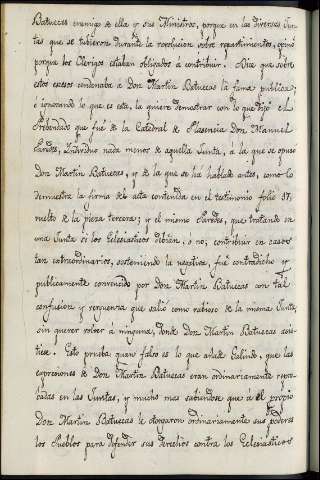 Batuecas enemigo de ella y sus Ministros, porque en las diversas Jun-
tas que se tubieron durante la revolucion sobre repartimentos, opinó
porque los Clerigos estaban obligados á contribuir. Dice que sobre
estos excesos condenaba á Don Martin Batuecas la fama publica;
é ignorando lo que es esta, la quiere demostrar con lo que dijo el
Prebendado que fué de la Catedral de Plasencia Don Manuel
Paredes, Individuo nada menos de aquella Junta, á la que se opuso
Don Martin Batuecas, y de la que se ha hablado antes, como lo
demuestra la firma del acta contenida en el testimonio folio 37,
vuelto de la pieza tercera; y el mismo Paredes, que tratando en
una Junta si los Eclesiasticos debian, o no, contribuir en casos
tan extraordinarios, sosteniendo la negativa, fué contradicho y
publicamente convencido por Don Martin Batuecas con tal
confusion y verguenza que salió como rabioso de la misma Junta,
sin querer volver á ninguna, donde Don Martin Batuecas asis-
tiese. Esto prueba quan falso es lo que añade Galindo, que las
expresiones de Don Martin Batuecas eran ordinariamente repro-
badas en las Juntas, y mucho mas sabiendose que á él propio
Don Martin Batuecas le otorgaron ordinariamente sus poderes
los Pueblos para defender sus derechos contra los Eclesiasticos